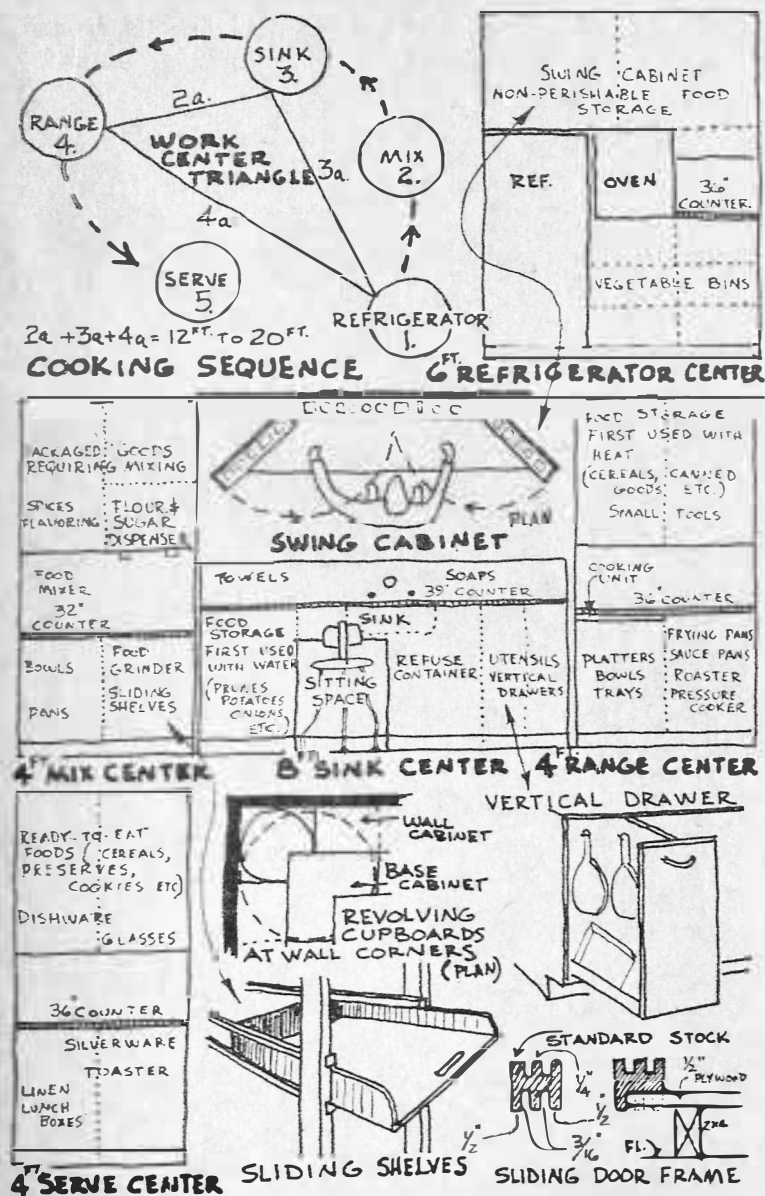 SINK
3.
RANGE
4.
2a.
WORK
CENTER
TRIANGLE
3a.
4a
MIX
2.
SERVE
5.
REFRIGERATOR
1.
2a + 3a + 4a = 12 FT. TO 20 FT.
COOKING SEQUENCE
SWING CABINET
NON-PERISHABLE FOOD
STORAGE
REF.
OVEN
36"
COUNTER.
VEGETABLE BINS
6 FT. REFRIGERATOR CENTER
ACKAGED GOODS
REQUIRING MIXING
SPICES
FLAVORING
FLOUR &
SUGAR
DISPENSER
FOOD
MIXER
32"
COUNTER
BOWLS
PANS
FOOD
GRINDER
SLIDING
SHELVES
4 FT MIX CENTER
PLAN
SWING CABINET
TOWELS
SOAPS
39" COUNTER
SINK
FOOD
STORAGE
FIRST USED
WITH WATER
(PRUNES
POTATOES
ONIONS
ETC.)
SITTING
SPACE
REFUSE
CONTAINER
UTENSILS
VERTICAL
DRAWERS
8 FT SINK CENTER
FOOD STORAGE
FIRST USED WITH
HEAT
(CEREALS, CANNED
GOODS ETC.)
SMALL TOOLS
COOKING
UNIT
36" COUNTER
PLATTERS
BOWLS
TRAYS
FRYING PANS
SAUCE PANS
ROASTER
PRESSURE
COOKER
4 FT RANGE CENTER
READY-TO-EAT
FOODS (CEREALS,
PRESERVES,
COOKIES ETC)
DISHWARE
GLASSES
36" COUNTER
SILVERWARE
TOASTER
LINEN
LUNCH
BOXES
4 FT. SERVE CENTER
WALL
CABINET
BASE
CABINET
REVOLVING
CUPBOARDS
AT WALL CORNERS
(PLAN)
SLIDING SHELVES
VERTICAL DRAWER
STANDARD STOCK
1/4"
1/2"
1/2"
3/16"
1/2"
PLYWOOD
2x4
FL.
SLIDING DOOR FRAME